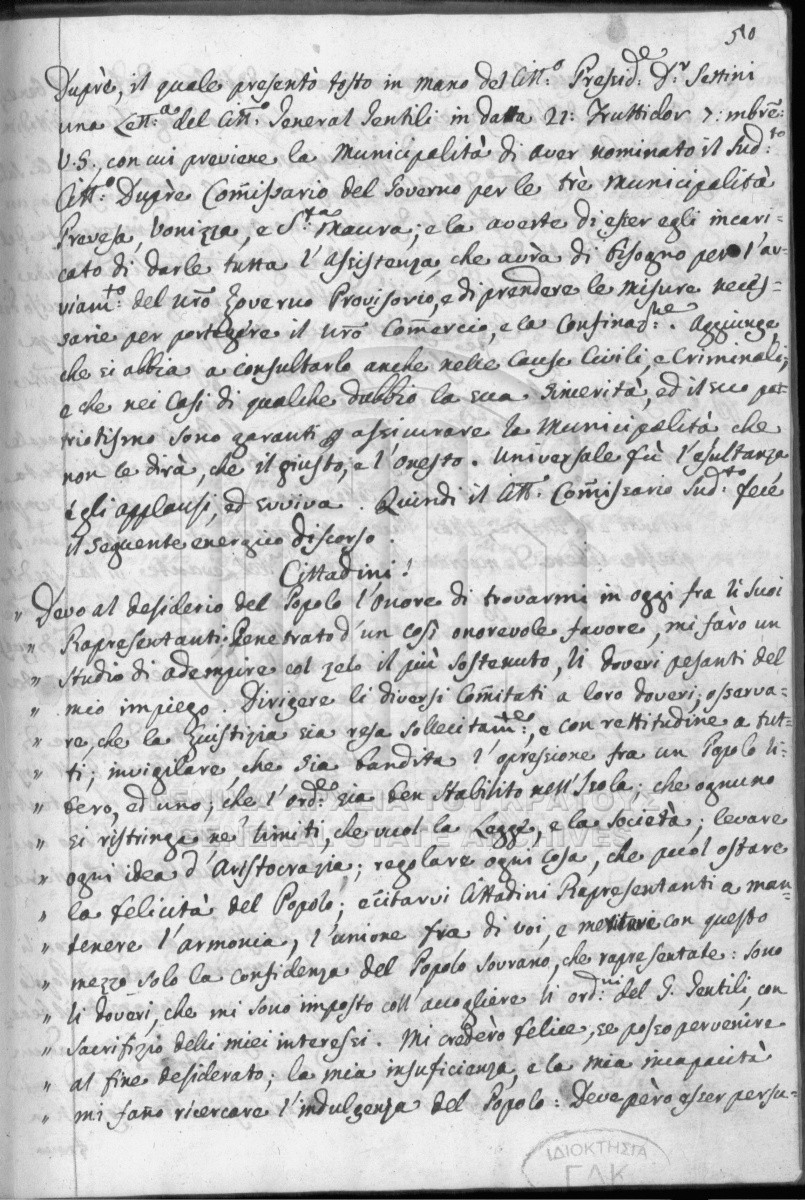 50
Duprè, il quale presentò tosto in mano del Citt:o Presid:e D:r Settini
una Lett:a del Citt:o General Gentili in data 21: Fruttidor 7:mbre:
V.S., con cui previene la Municipalità di aver nominato il Sud:to
Citt:o Duprè Com̃issario del Governo per le trè Municipalità
Prevesa, Vonizza, e S:ta Maura; e la averte di esser egli incari-
cato di darle tutta l'Assistenza, che avrà di bisogno per l'av-
viam:to del nr̃o Governo Provisorio, e di prendere le misure neces-
sarie per portegire il nr̃o Com̃ercio, e la Confinaz:ne. Aggiunge,
che si abbia a consultarlo anche nelle Cause Civili, e Criminali;
e che nei Casi di qualche dubbio la sua Sincerità, ed il suo pat-
triotismo sono garanti p assicurare la Municipalità che
non le dirà, che il giusto, e l'onesto. Universale fù l'esultanza
e gli applausi, ed evviva. Quindi il Citt:o Com̃issario Sud:to fece
il seguente energico discorso.
Cittadini!
" Devo al desiderio del Popolo l'onore di trovarmi in oggi fra li suoi
" Rapresentanti. Penetrato d'un così onorevole favore, mi farò un
" studio di adempire col zelo il più sostenuto, li doveri pesanti del
" mio impiego. Dirigere li diversi Com̃itati a loro doveri; osserva-
" re, che la Giustizia sia resa sollecitam:e, e con rettitudine a tut-
" ti; invigilare, che sia bandita l'opressione fra un Popolo li-
" bero, ed uno; che l'ord:e sia ben stabilito nell'Isola; che ognuno
" si ristringa ne' limiti, che vuol la Legge, e la società; levare
" ogni idea d'Aristocrazia; regolare ogni cosa, che puol ostare
" la felicità del Popolo; ecitarvi Cittadini Rapresentanti a man-
" tenere l'armonia, l'unione fra di voi, e meritare con questo
" mezzo solo la confidenza del Popolo sovrano, che rapresentate: sono
" li doveri, che mi sono imposto coll'accogliere li ord:ni del G. Gentili, con
" sacrifizio delli miei interessi. Mi crederò felice, se posso pervenire
" al fine desiderato; la mia insuficienza, e la mia incapacità
" mi fano ricercare l'indulgenza del Popolo: Deve però esser persu-
ΓΕΝΙΚΑ ΑΡΧΕΙΑ ΤΟΥ ΚΡΑΤΟΥΣ
GENERAL STATE ARCHIVES
ΙΔΙΟΚΤΗΣΙΑ
Γ.Α.Κ.